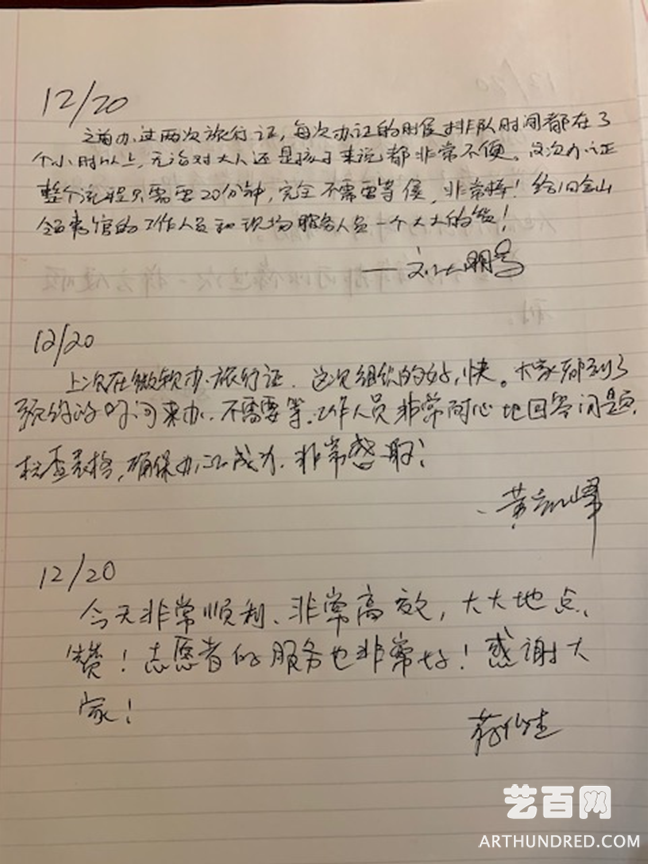 12/20
之前办过两次旅行证，每次办证的时侯排队时间都在3
个小时以上，无论对大人还是孩子来说都非常不便。这次办证
整个流程只需要20分钟，完全不需要等侯，非常棒！给旧金山
领事馆的工作人员和现场服务人员一个大大的赞！
12/20
上次在微软办旅行证．这次组织的好，快。大家都到了
预约的时间来办．不需要等．工作人员非常耐心地回答问题．
检查表格，确保办证成功．非常感谢！
黄 峰
12/20
今天非常顺利、非常高效，大大地点、
赞！志愿者的服务也非常好！感谢大
家！
艺百网
ARTHUNDRED.COM